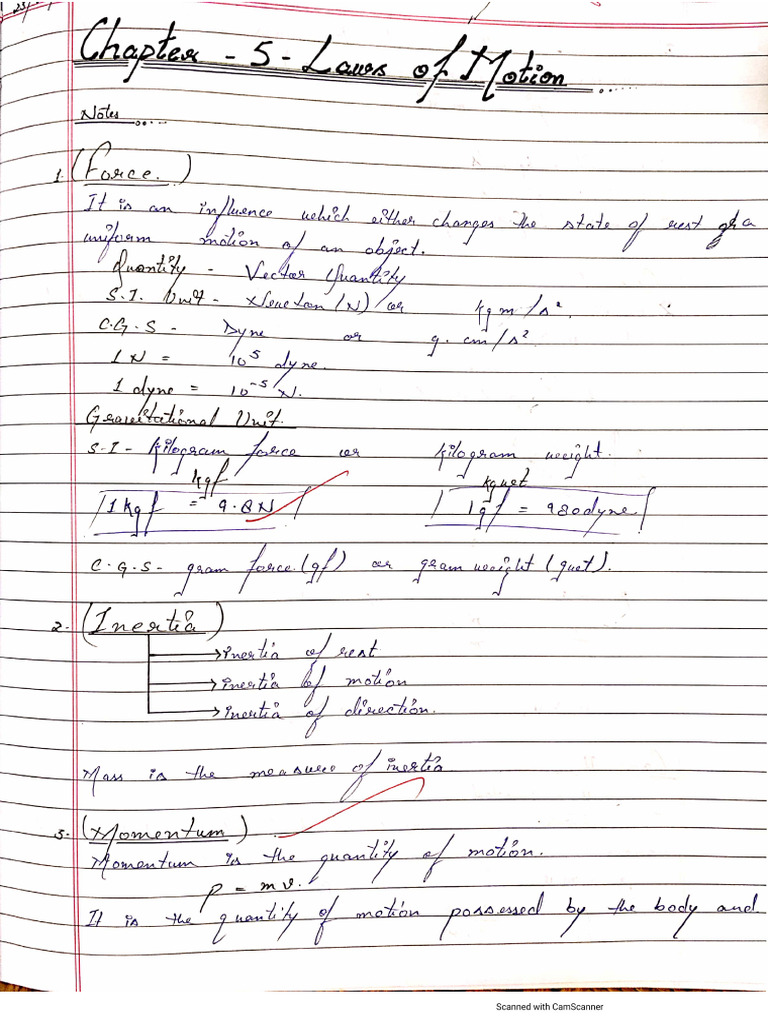 Chapter - 5 - Laws of Motion .....
Notes .....
1. (Force.)
It is an influence which either changes the state of rest
uniform motion of an object.
Quantity - Vector Quantity
S.I. Unit - Newton (N) or kg m/s²
C.G.S - Dyne or g. cm/s²
1 N = 10⁵ dyne.
1 dyne = 10⁻⁵ N.
Gravitational Unit.
S.I - Kilogram force or kilogram weight.
kgf kgwt
1 kgf = 9.8N 1gf = 980dyne
C.G.S - gram force (gf) or gram weight (gwt).
2. (Inertia)
→ inertia of rest
→ inertia of motion
→ inertia of direction.
Mass is the measure of inertia
3. (Momentum)
Momentum is the quantity of motion.
p = mv.
It is the quantity of motion possessed by the body and
Scanned with CamScanner